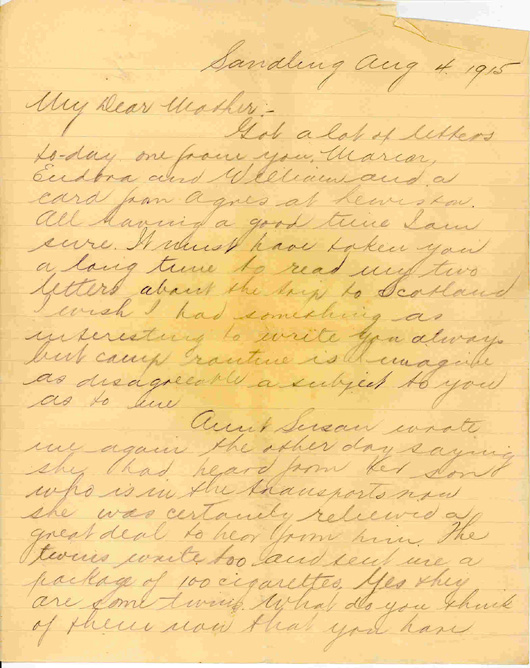 Sandling Aug 4. 1915
My Dear Mother:-
Got a lot of letters
to-day one from you, Marion,
Eudora and William and a
card from Agnes at Lewiston.
All having a good time I am
sure. It must have taken you
a long time to read my two
letters about the trip to Scotland
I wish I had something as
interesting to write you always
but camp routine is I imagine
as disagreeable a subject to you
as to me
Aunt Susan wrote
me again the other day saying
she had heard from her son
who is in the transports now
she was certainly relieved a
great deal to hear from him. The
twins write too and sent me a
package of 100 cigarettes. Yes they
are some twins. What do you think
of them now that you have